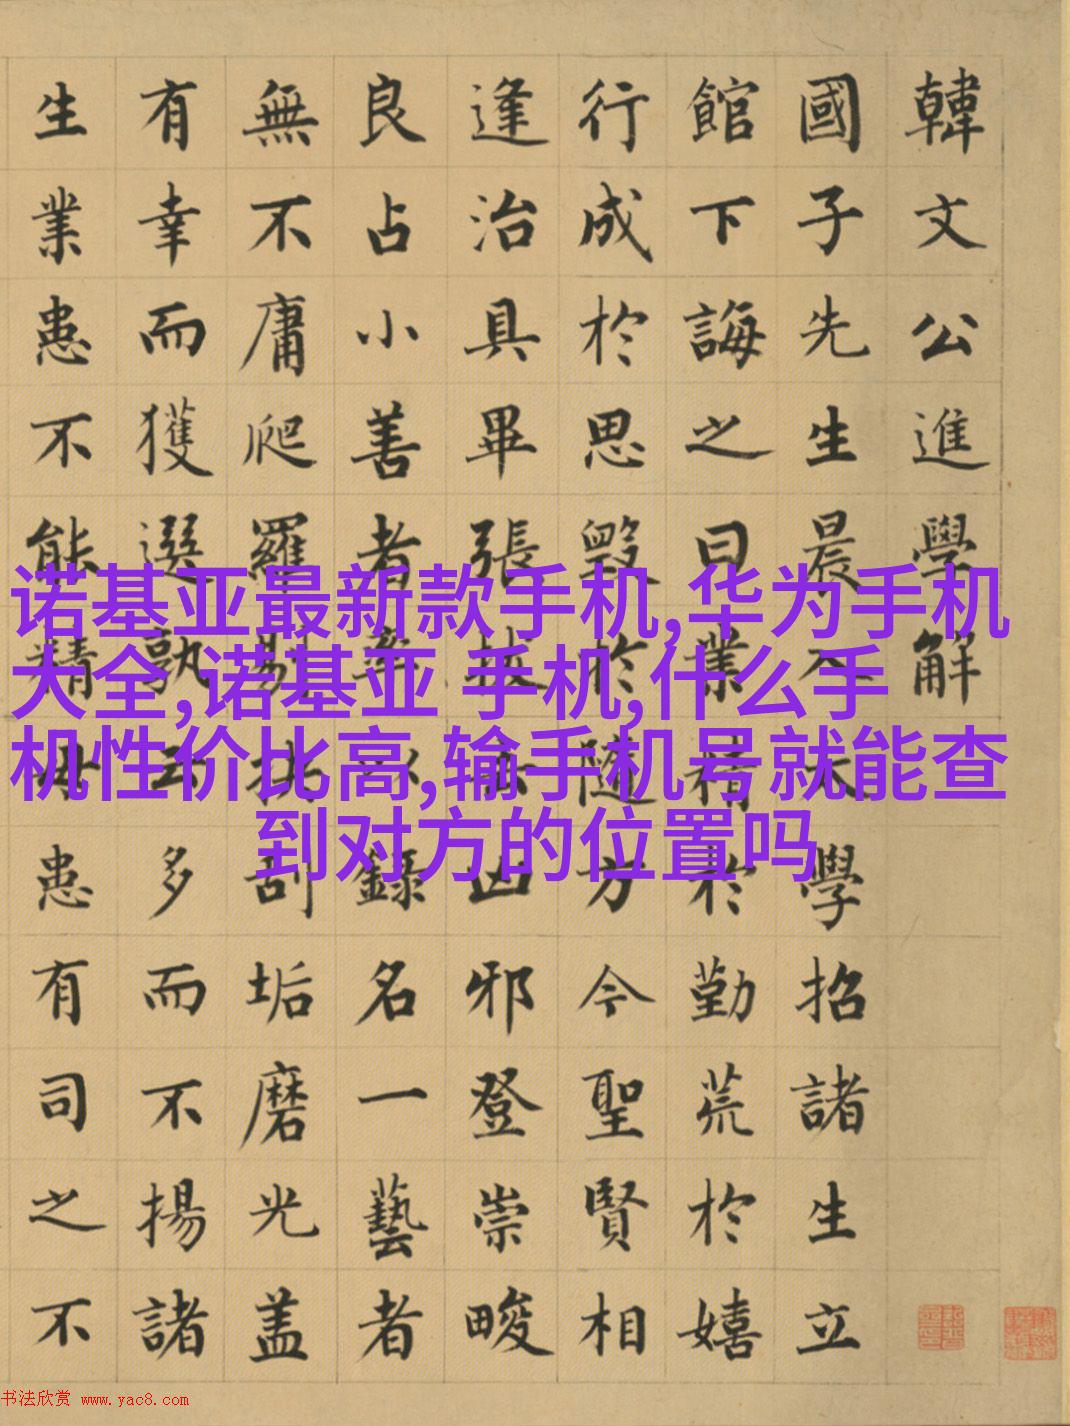 韓文公進學解
國子先生晨入太學招諸生立
館下誨之曰業精於勤荒於嬉
行成於思毀於隨方今聖賢相
逢治具畢張拔去凶邪登崇畯
良占小善者率以錄名一藝者
無不庸爬羅剔抉刮垢磨光盖
有幸而獲選孰云多而不揚諸
生業患不能精毋患有司之不
诺基亚最新款手机,华为手机
大全,诺基亚 手机,什么手
机性价比高,输手机号就能查
到对方的位置吗
书法欣赏 www.yac8.com